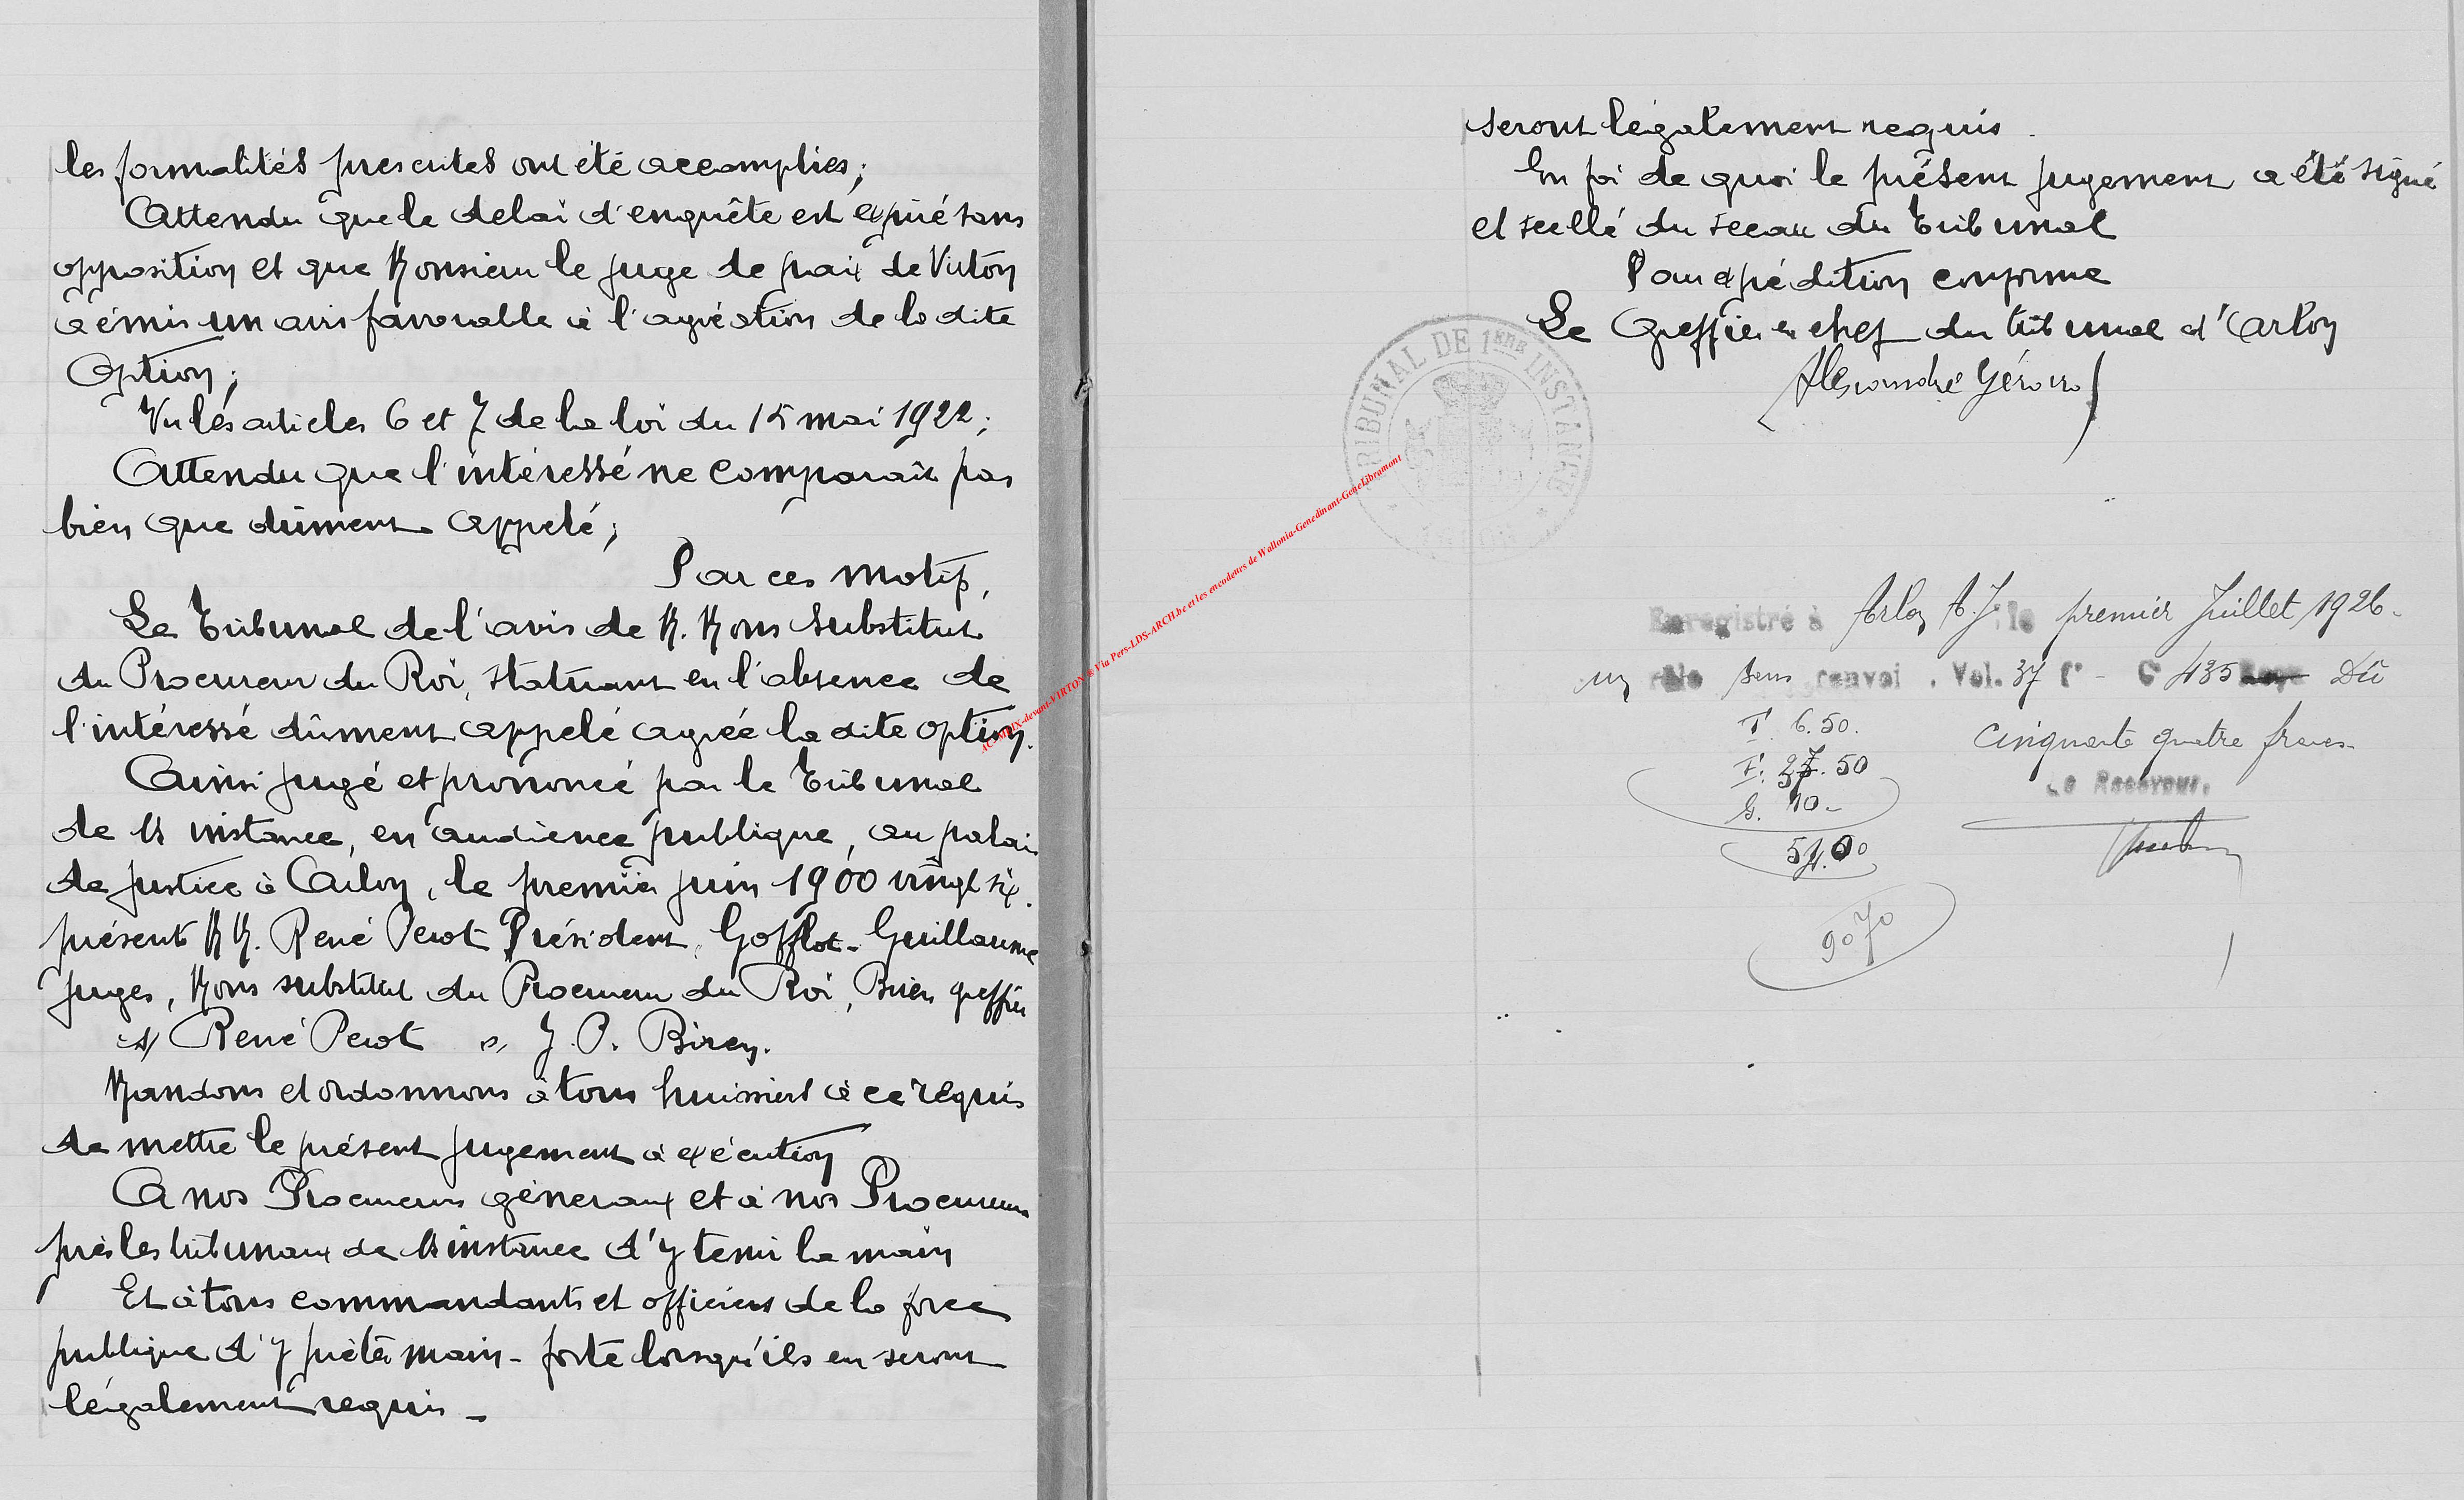 les formalités prescrites ont été accomplies;
Attendu que le delai d'enquête est expiré sans
opposition et que Monsieur le juge de paix de Virton
a émis un avis favorable à l'agréation de la dite
Option;
Vu les articles 6 et 7 de la loi du 15 mai 1922;
Attendu que l'intéressé ne comparaît pas
bien que dûment appelé;
Par ces motifs,
Le Tribunal de l'avis de M. Mons Substitut
du Procureur du Roi, statuant en l'absence de
l'intéressé dûment appelé agrée la dite option.
Ainsi jugé et prononcé par le Tribunal
de 1re instance, en audience publique, au palais
de justice à Arlon, le premier juin 1900 vingt six.
présents MM. René Perot Président, Gofflot-Guillaume
juges, Mons substitut du Procureur du Roi, Biren greffier
s/ René Perot s/ J. P. Biren.
Mandons et ordonnons à tous huissiers à ce requis
de mettre le présent jugement à exécution
A nos Procureurs géneraux et à nos Procureurs
près les tribunaux de 1re instance d'y tenir la main
Et à tous commandants et officiers de la force
publique d'y prêter main-forte lorsqu'ils en seront
légalement requis_
seront légalement requis.
En foi de quoi le présent jugement a été signé
et scellé du sceau du Tribunal
Pour expédition conforme
Le Greffier en chef du tribunal d'Arlon
Alexandre Gérard
TRIBUNAL DE 1ERE INSTANCE
ARLON
AC-SMIX-devant-VIRTON ® Via Pers-LDS-ARCH.be et les encodeurs de Wallonia-Genedinant-GeneLibramont
Enregistré à Arlon A.J. le premier Juillet 1926-
un rôle sans renvoi. Vol. 37 f° - C° 435 Dû
T. 6.50.
cinquante quatre francs-
F. 37.50
Le Receveur,
G. 10-
54.00
9070